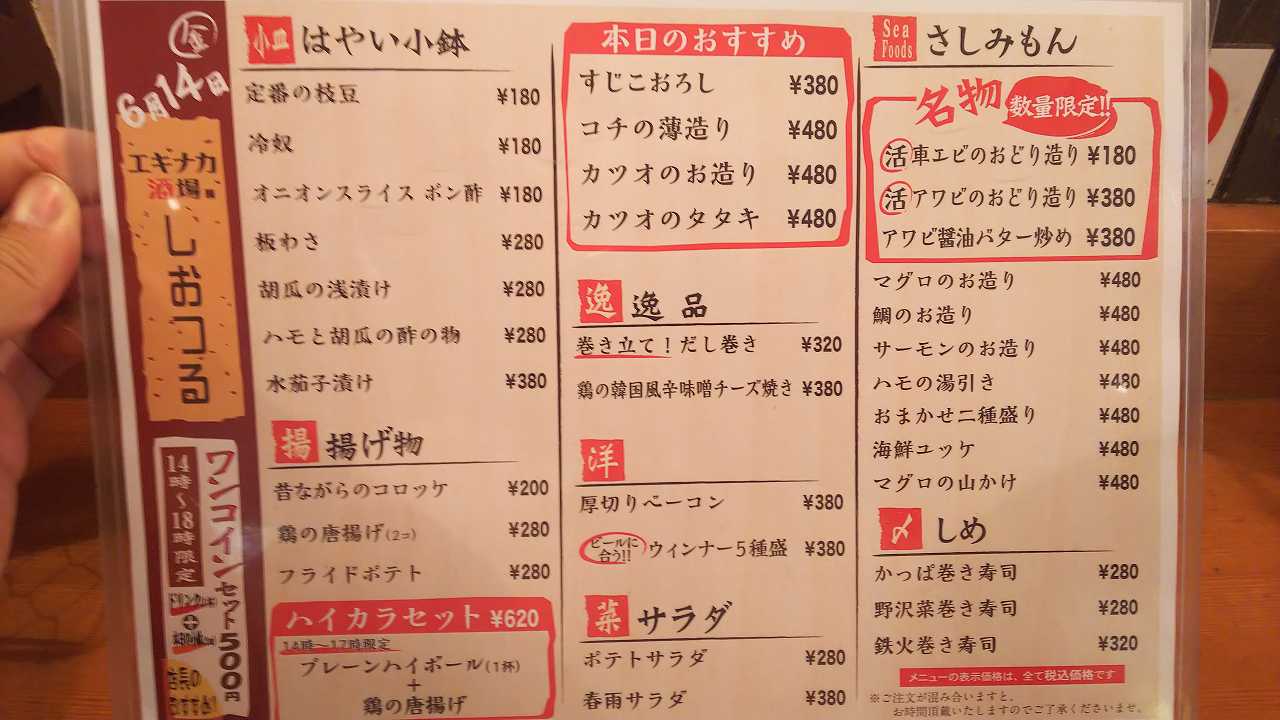 金
6月14日
エキナカ
酒場
しおつる
ワンコインセット500円
14時～18時限定
ドリンク
+
店長の
おすすめ!
小皿 はやい小鉢
定番の枝豆 ¥180
冷奴 ¥180
オニオンスライス ポン酢 ¥180
板わさ ¥280
胡瓜の浅漬け ¥280
ハモと胡瓜の酢の物 ¥280
水茄子漬け ¥380
揚 揚げ物
昔ながらのコロッケ ¥200
鶏の唐揚げ(2コ) ¥280
フライドポテト ¥280
ハイカラセット ¥620
14時～17時限定
プレーンハイボール(1杯)
+
鶏の唐揚げ
本日のおすすめ
すじこおろし ¥380
コチの薄造り ¥480
カツオのお造り ¥480
カツオのタタキ ¥480
逸 逸品
巻き立て！だし巻き ¥320
鶏の韓国風辛味噌チーズ焼き ¥380
洋
厚切りベーコン ¥380
ビールに合う!! ウィンナー5種盛 ¥380
菜 サラダ
ポテトサラダ ¥280
春雨サラダ ¥380
Sea Foods さしみもん
名物 数量限定!!
活 車エビのおどり造り ¥180
活 アワビのおどり造り ¥380
アワビ醤油バター炒め ¥380
マグロのお造り ¥480
鯛のお造り ¥480
サーモンのお造り ¥480
ハモの湯引き ¥480
おまかせ二種盛り ¥480
海鮮ユッケ ¥480
マグロの山かけ ¥480
〆 しめ
かっぱ巻き寿司 ¥280
野沢菜巻き寿司 ¥280
鉄火巻き寿司 ¥320
メニューの表示価格は、全て税込価格です
※ご注文が混み合いますと、
お時間頂戴いたしますのでご了承くださいませ。